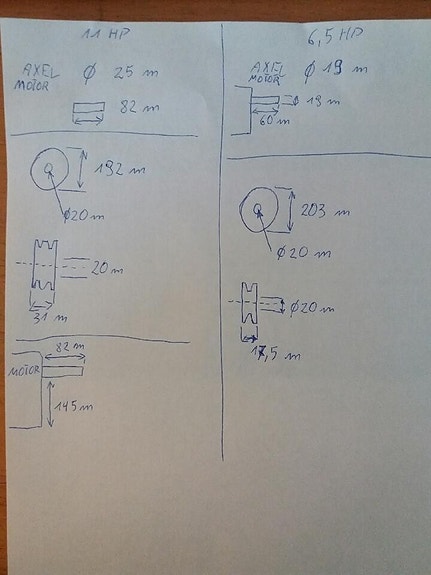 11 HP
AXEL Ø 25 m
MOTOR
82 m
192 m
Ø20 m
20 m
31 m
82 m
MOTOR
145 m
6,5 HP
AXEL Ø 19 m
MOTOR
Ø 19 m
60 m
203 m
Ø20 m
Ø20 m
17,5 m